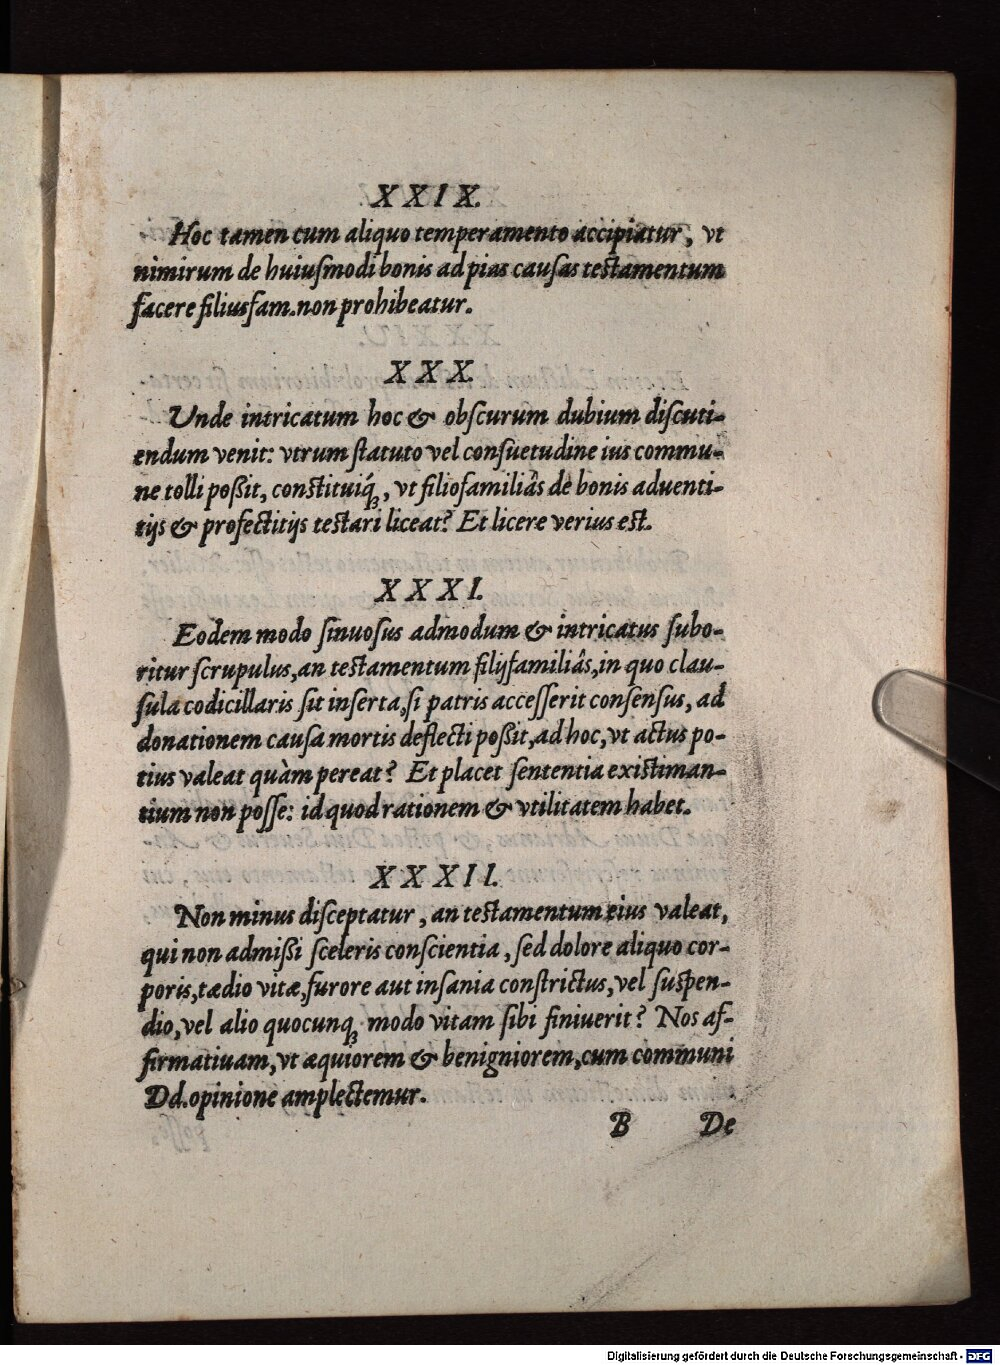 XXIX.
Hoc tamen cum aliquo temperamento accipiatur, vt
nimirum de huiuſmodi bonis ad pias cauſas teſtamentum
facere filiusfam. non prohibeatur.
XXX.
Unde intricatum hoc & obſcurum dubium diſcuti-
endum venit: vtrum ſtatuto vel conſuetudine ius commu-
ne tolli poßit, conſtituiq́;, vt filiofamiliâs de bonis aduenti-
tijs & profectitijs teſtari liceat? Et licere verius eſt.
XXXI.
Eodem modo ſinuoſus admodum & intricatus ſubo-
ritur ſcrupulus, an teſtamentum filijfamiliâs, in quo clau-
ſula codicillaris ſit inſerta, ſi patris acceſſerit conſenſus, ad
donationem cauſa mortis deflecti poßit, ad hoc, vt actus po-
tius valeat quàm pereat? Et placet ſententia exiſtiman-
tium non poſſe: id quod rationem & vtilitatem habet.
XXXII.
Non minus diſceptatur, an teſtamentum eius valeat,
qui non admißi ſceleris conſcientia, ſed dolore aliquo cor-
poris, tædio vitæ, furore aut inſania conſtrictus, vel ſuſpen-
dio, vel alio quocunq; modo vitam ſibi finiuerit? Nos af-
firmatiuam, vt æquiorem & benigniorem, cum communi
Dd. opinione amplectemur.
B De
Digitalisierung gefördert durch die Deutsche Forschungsgemeinschaft - DFG